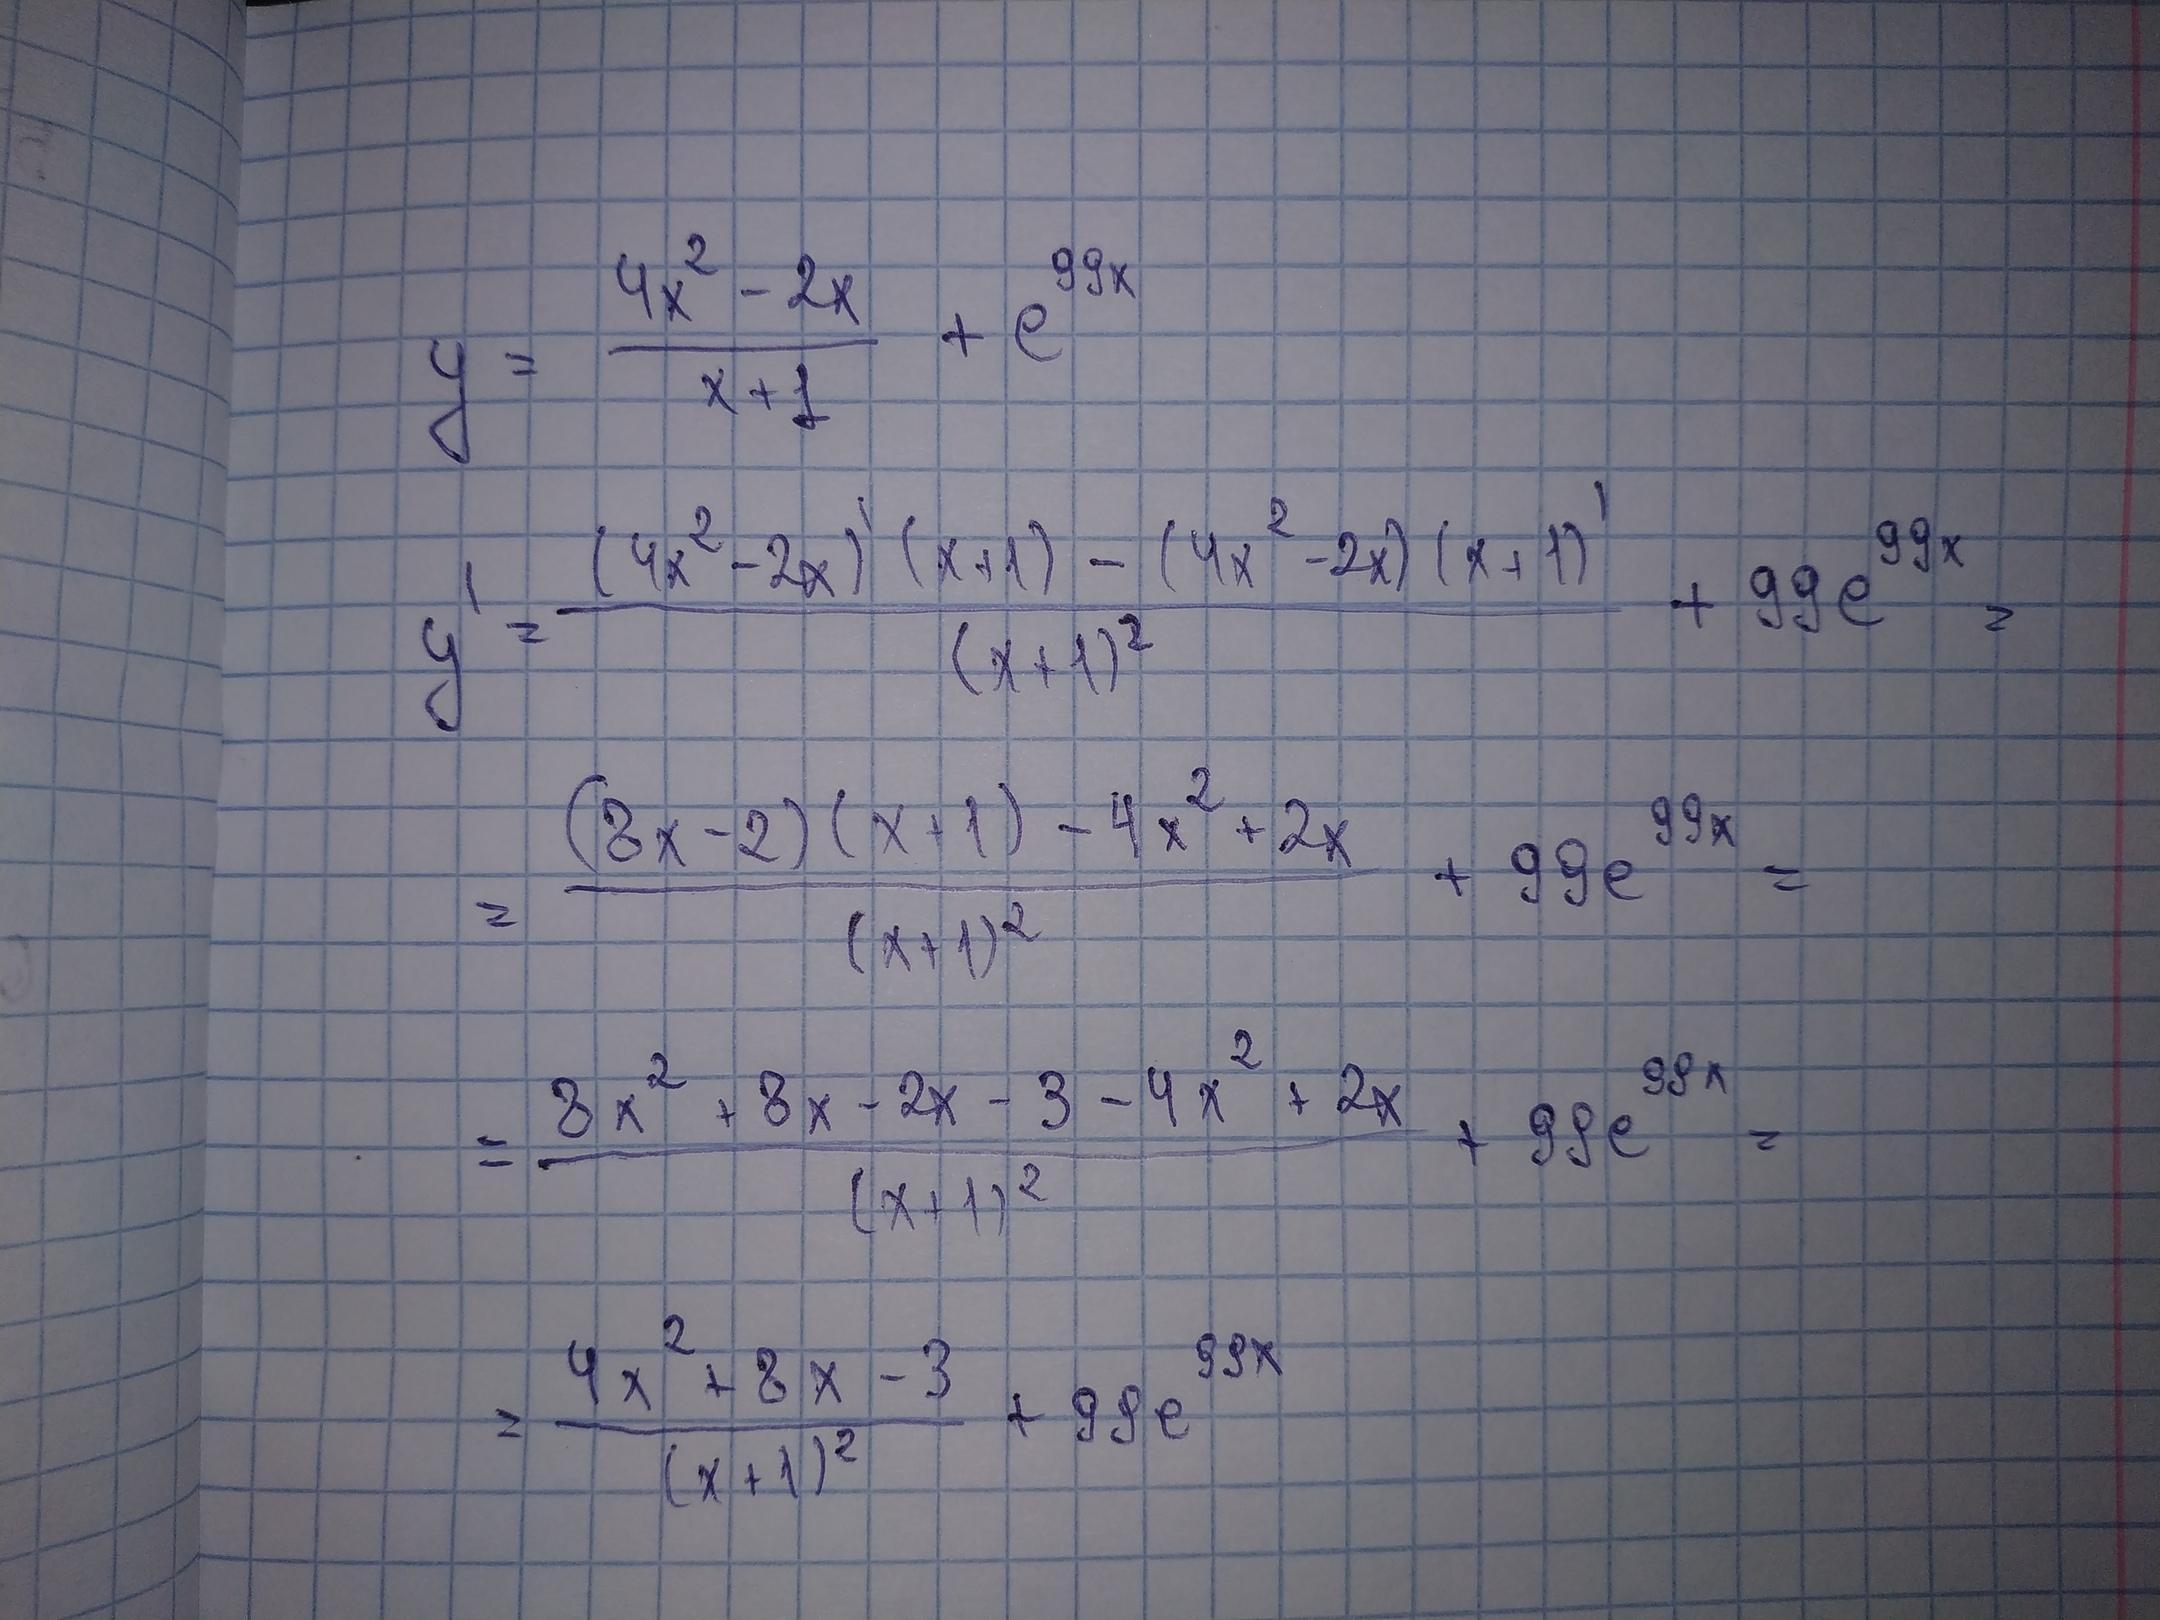 y = (4x² - 2x)/(x + 1) + e^(99x)
y' = ((4x² - 2x)'(x + 1) - (4x² - 2x)(x + 1)')/(x + 1)² + 99e^(99x) =
= ((8x - 2)(x + 1) - 4x² + 2x)/(x + 1)² + 99e^(99x) =
= (8x² + 8x - 2x - 3 - 4x² + 2x)/(x + 1)² + 99e^(99x) =
= (4x² + 8x - 3)/(x + 1)² + 99e^(99x)